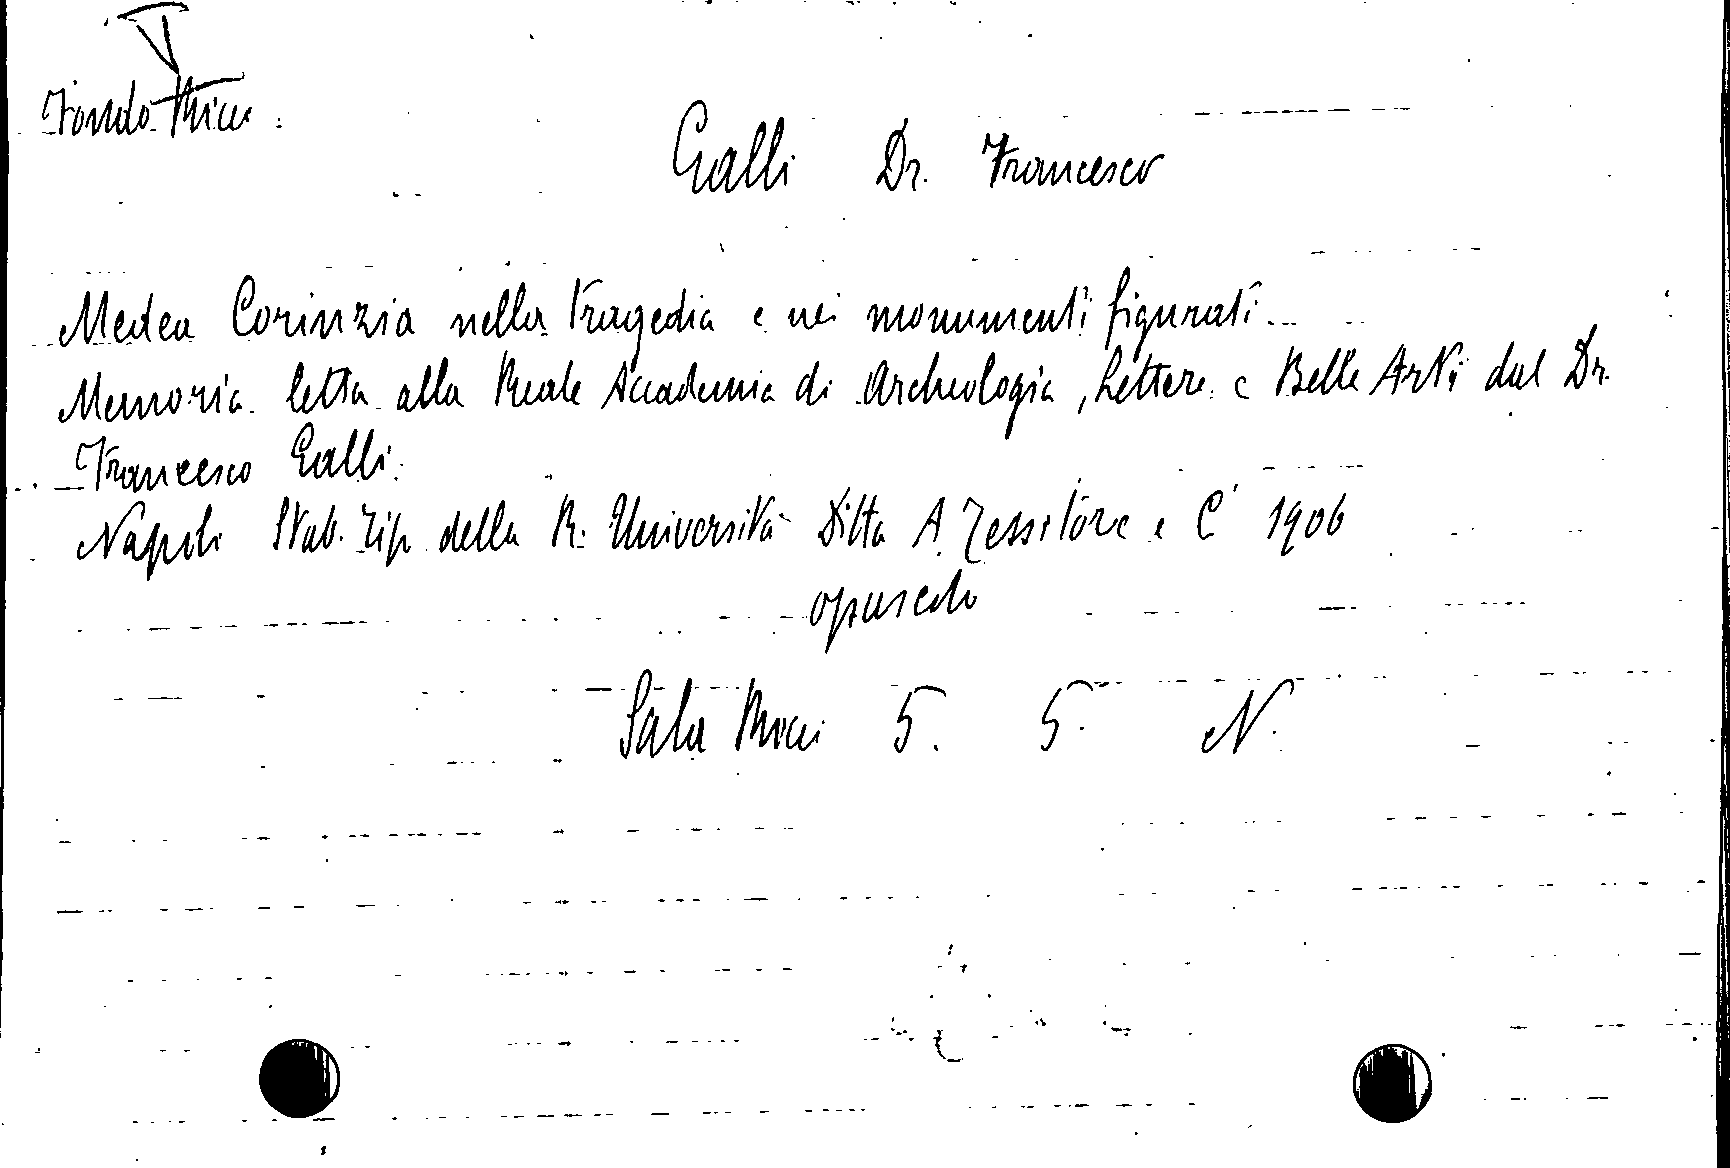 Fondo Ricci
Galli Dr. Francesco
Medea Corinzia nella tragedia e nei monumenti figurati
Memoria letta alla Reale Accademia di Archeologia, Lettere e Belle Arti dal Dr.
Francesco Galli.
Napoli Stab. Tip. della R. Università Ditta A. Tessitore e C 1906
opuscolo
Sala Ricci 5. 5. N.